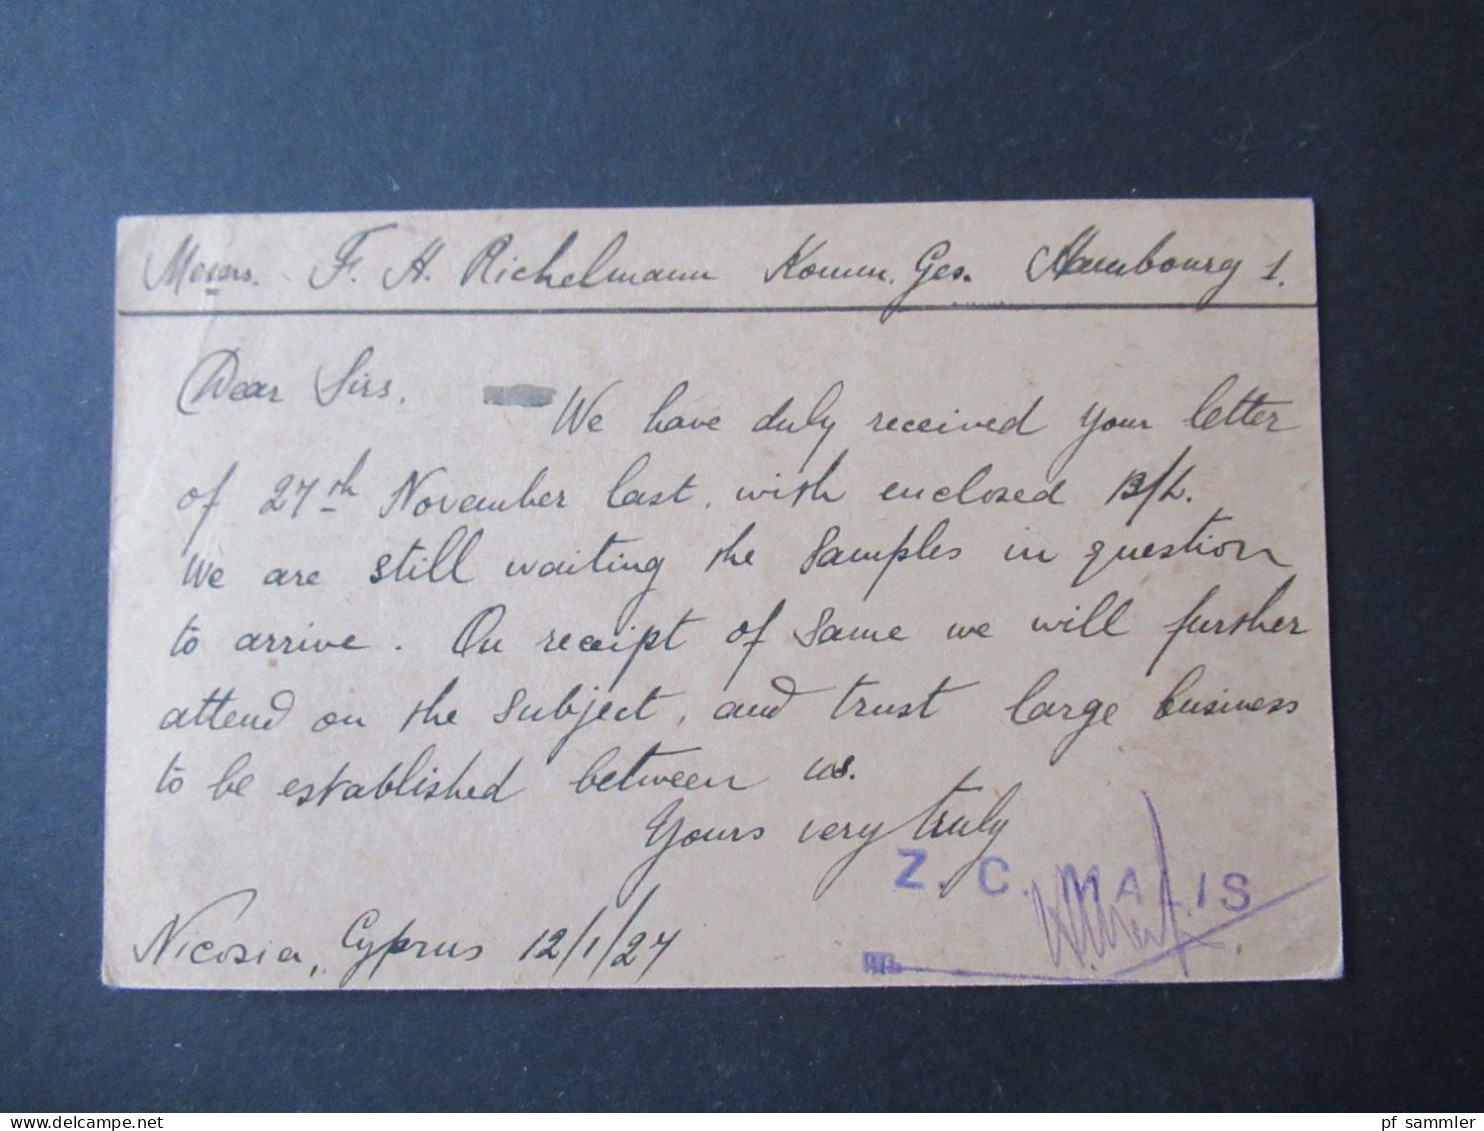 Messrs. F. H. Richelmann Komm. Ges. Hambourg 1.
Dear Sirs,
We have duly received your letter
of 27th November last, with enclosed B/L.
We are still waiting the samples in question
to arrive. On receipt of same we will further
attend on the subject, and trust large business
to be established between us.
Yours very truly
Z. C. MALIS
Nicosia, Cyprus 12/1/27
pf sammler